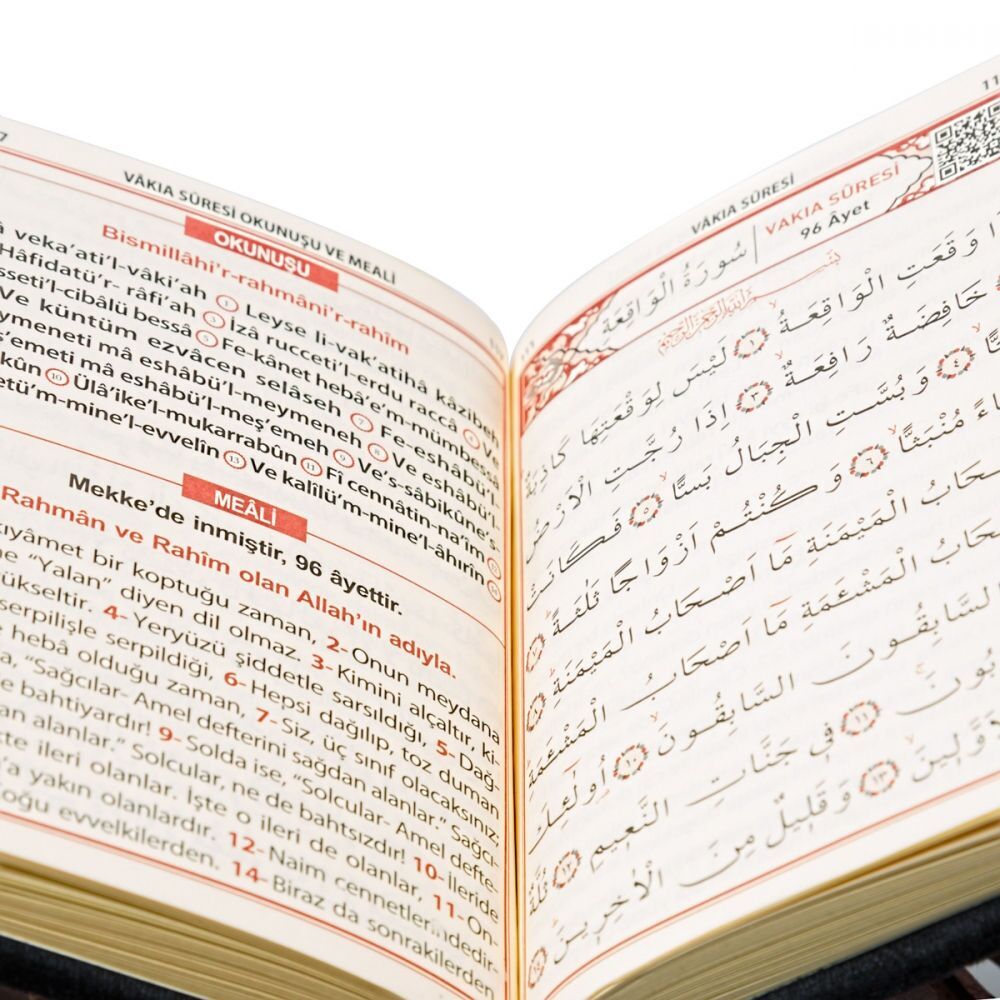 7
VÂKIA SÛRESİ OKUNUŞU VE MEALİ
OKUNUŞU
Bismillâhi'r-rahmâni'r-rahîm
veka'ati'l-vâkı'ah ① Leyse li-vak'atihâ kâzibeh
Hâfidatü'r- râfi'ah ③ İzâ rucceti'l-erdu raccâ ④ Ve
sseti'l-cibâlü bessâ ⑤ Fe-kânet hebâ'e'm-mümbessâ
Ve küntüm ezvâcen selâseh ⑦ Fe-eshâbü'l-
ymeneti mâ eshâbü'l-meymeneh ⑧ Ve eshâbü'l-
ş'emeti mâ eshâbü'l-meş'emeh ⑨ Ve's-sâbikûne's-
kûn ⑩ Ülâ'ike'l-mukarrabûn ⑪ Fî cennâtin-na'îm ⑫
etü'm-mine'l-evvelîn ⑬ Ve kalîlü'm-mine'l-âhırîn ⑭
MEÂLİ
Mekke'de inmiştir, 96 âyettir.
Rahmân ve Rahîm olan Allah'ın adıyla.
kıyâmet bir koptuğu zaman, 2- Onun meydana
ne "Yalan" diyen dil olmaz. 3- Kimini alçaltır, ki-
ükseltir. 4- Yeryüzü şiddetle sarsıldığı, 5- Dağ-
serpilişle serpildiği, 6- Hepsi dağılıp, toz duman
hebâ olduğu zaman, 7- Siz, üç sınıf olacaksınız;
a, "Sağcılar- Amel defterini sağdan alanlar." Sağcı-
e bahtiyardır! 9- Solda ise, "Solcular- Amel defte-
an alanlar." Solcular, ne de bahtsızdır! 10- İleride
te ileri olanlar. İşte o ileri de olanlar, 11- On-
'a yakın olanlardır. 12- Naim cennetlerindedir-
oğu evvelkilerden. 14- Biraz da sonrakilerden
11
VÂKIA SÛRESİ
سُورَةُ الْوَاقِعَةِ
VAKIA SÛRESİ
96 Âyet
بِسْمِ اللّٰهِ الرَّحْمٰنِ الرَّحِيمِ
ا وَقَعَتِ الْوَاقِعَةُ ﴿١﴾ لَيْسَ لِوَقْعَتِهَا كَاذِبَةٌ
خَافِضَةٌ رَافِعَةٌ ﴿٣﴾ اِذَا رُجَّتِ الْاَرْضُ
ًّا ﴿٤﴾ وَبُسَّتِ الْجِبَالُ بَسًّا ﴿٥﴾ فَكَانَتْ
اءً مُنْبَثًّا ﴿٦﴾ وَكُنْتُمْ اَزْوَاجًا ثَلٰثَةً ﴿٧﴾
حَابُ الْمَيْمَنَةِ مَٓا اَصْحَابُ الْمَيْمَنَةِ ﴿٨﴾
حَابُ الْمَشْـَٔمَةِ مَٓا اَصْحَابُ الْمَشْـَٔمَةِ
السَّابِقُونَ السَّابِقُونَ ﴿١٠﴾ اُو۬لٰٓئِكَ
بُونَ ﴿١١﴾ ف۪ي جَنَّاتِ النَّع۪يمِ ﴿١٢﴾ ثُلَّةٌ
اَوَّل۪ينَ ﴿١٣﴾ وَقَل۪يلٌ مِنَ الْاٰخِر۪ينَ ﴿١٤﴾